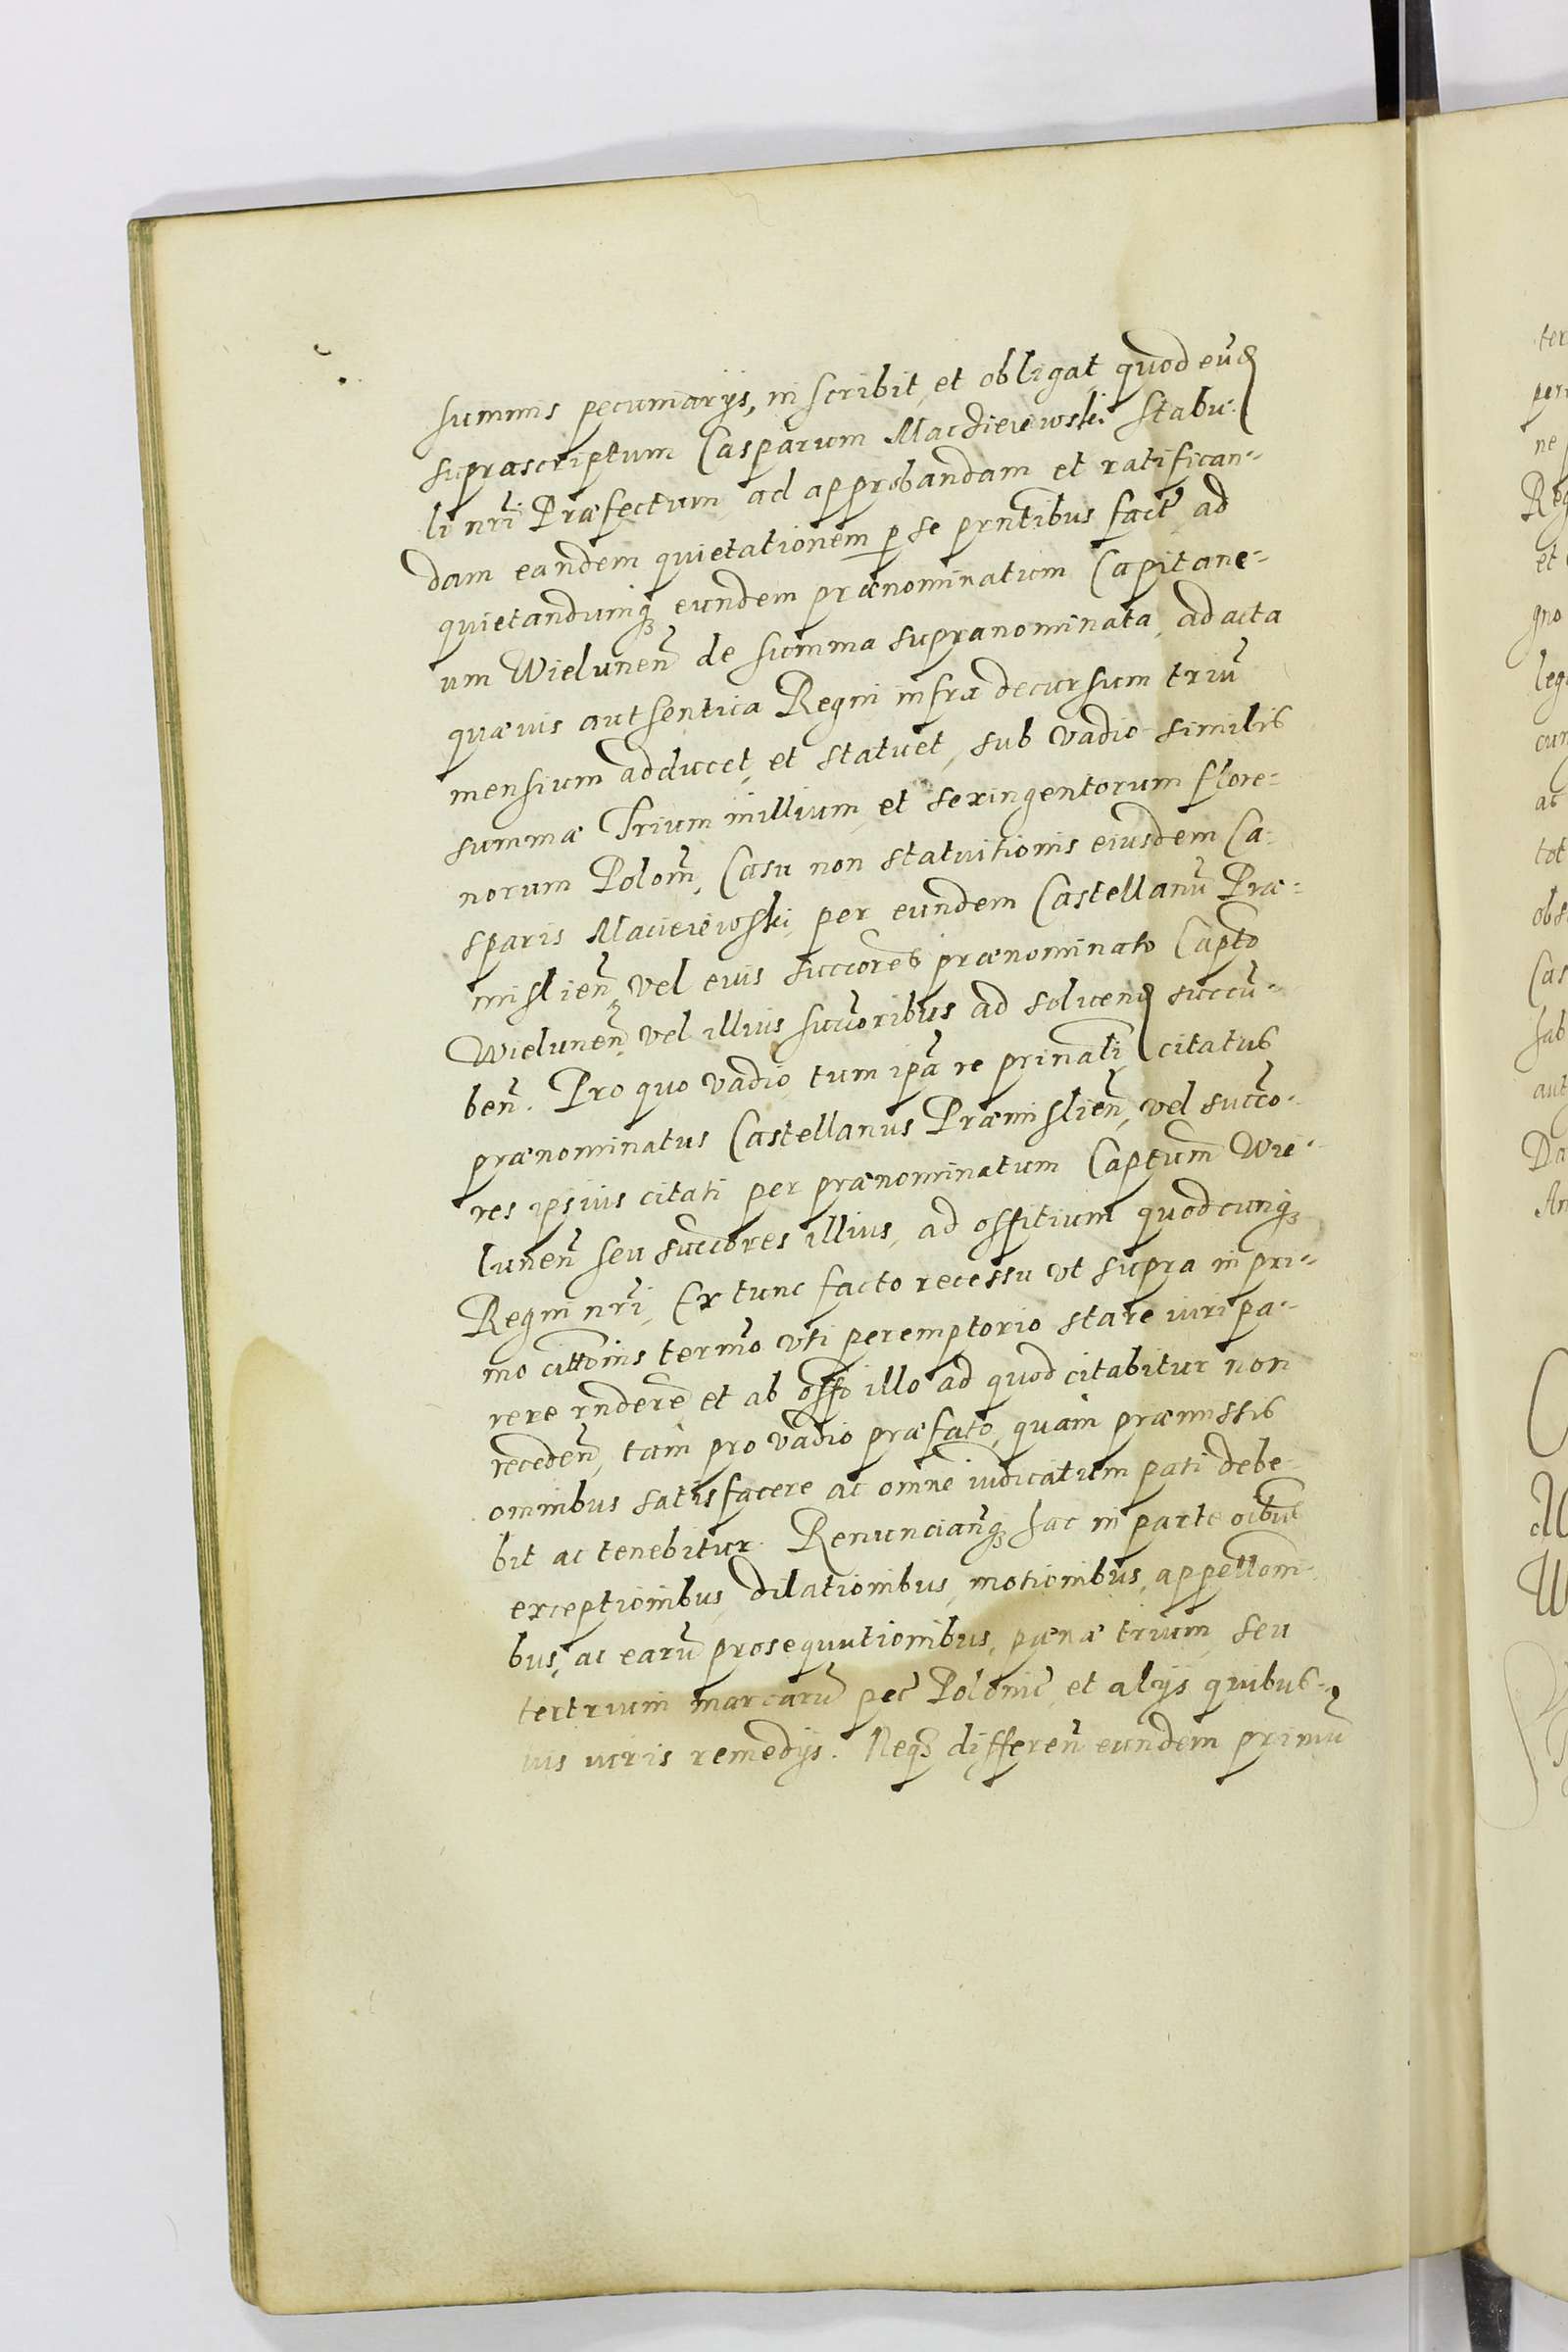 summis pecuniarijs, inscribit, et obligat, quod eũd
suprascriptum Casparum Maciieiewski Stabu-
li nr̃i Præfectum, ad approbandam et ratifican-
dam eandem quietationem p se prñtibus fact̃, ad
quietandumq̃ eundem prænominatum Capitane-
um Wielunen̄ de summa supranominata, ad acta
quævis authentica Regni infra decursum triũ
mensium adducet, et statuet, sub vadio similis
summæ Trium millium, et sexingentorum flore-
norum Polon̄, Casu non statuitionis eiusdem Ca-
sparis Macieiewski, per eundem Castellanũ Præ-
mislien̄, vel eius succores prænominato Capto
Wielunen̄, vel illius succoribus ad soluend succũ-
ben̄. Pro quo vadio, tum ipã re prinãli citatus
prænominatus Castellanus Præmislien̄, vel succo-
res ipsius citati per prænominatum Captum Wie-
lunen̄ seu succores illius, ad offitium quodcunq̃
Regni nr̃i, Ex tunc facto recessu vt supra in pri-
mo cittonis termo vti peremptorio stare iuri pa-
rere rñdere et ab offo illo ad quod citabitur non
receden̄, tam pro vadio præfato, quàm præmissis
omnibus satisfacere ac omne iudicatum pati debe-
bit ac tenebitur. Renuncianq̃ hac in parte oĩbus
exceptionibus, dilationibus, motionibus, appellom̃-
bus, ac earũ prosequutionibus, pænæ trium, seu
ter trium marcarũ pec̃ Polonic̃, et alijs quibus-
uis iuris remedijs. Neq̃ differen̄ eundem primũ